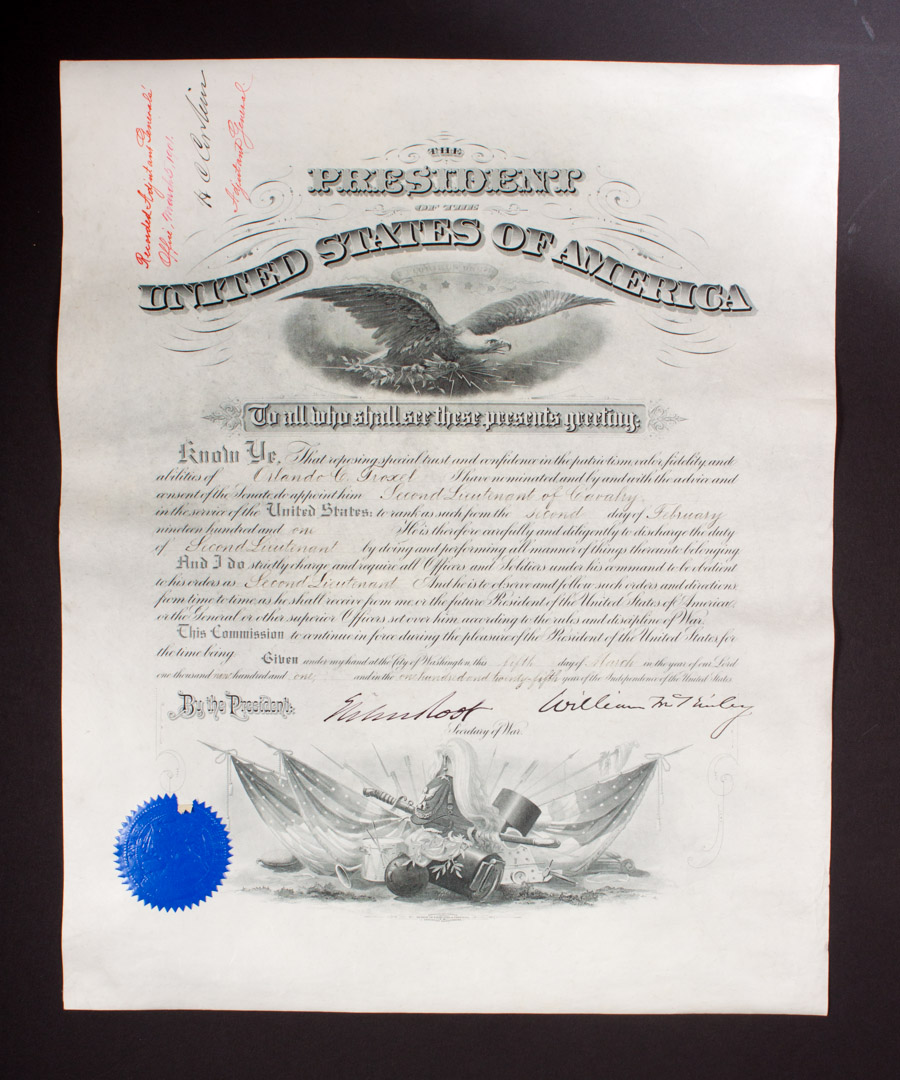 Recorded Adjutant General's
Office, March 5, 1901.
H C Corbin
Adjutant General
THE
PRESIDENT
OF THE
UNITED STATES OF AMERICA
To all who shall see these presents greeting:
Know Ye, That reposing special trust and confidence in the patriotism, valor, fidelity, and
abilities of Orlando C. Troxel I have nominated, and by and with the advice and
consent of the Senate, do appoint him Second Lieutenant of Cavalry
in the service of the United States: to rank as such from the second day of February
nineteen hundred and one He is therefore carefully and diligently to discharge the duty
of Second Lieutenant by doing and performing all manner of things thereunto belonging
And I do strictly charge and require all Officers and Soldiers under his command to be obedient
to his orders as Second Lieutenant And he is to observe and follow such orders and directions,
from time to time, as he shall receive from me, or the future President of the United States of America,
or the General or other superior Officers set over him, according to the rules and discipline of War.
This Commission to continue in force during the pleasure of the President of the United States, for
the time being.
Given under my hand at the City of Washington, this fifth day of March in the year of our Lord
one thousand nine hundred and one, and in the one hundred and twenty-fifth year of the Independence of the United States
By the President:
Elihu Root
William McKinley
Secretary of War.